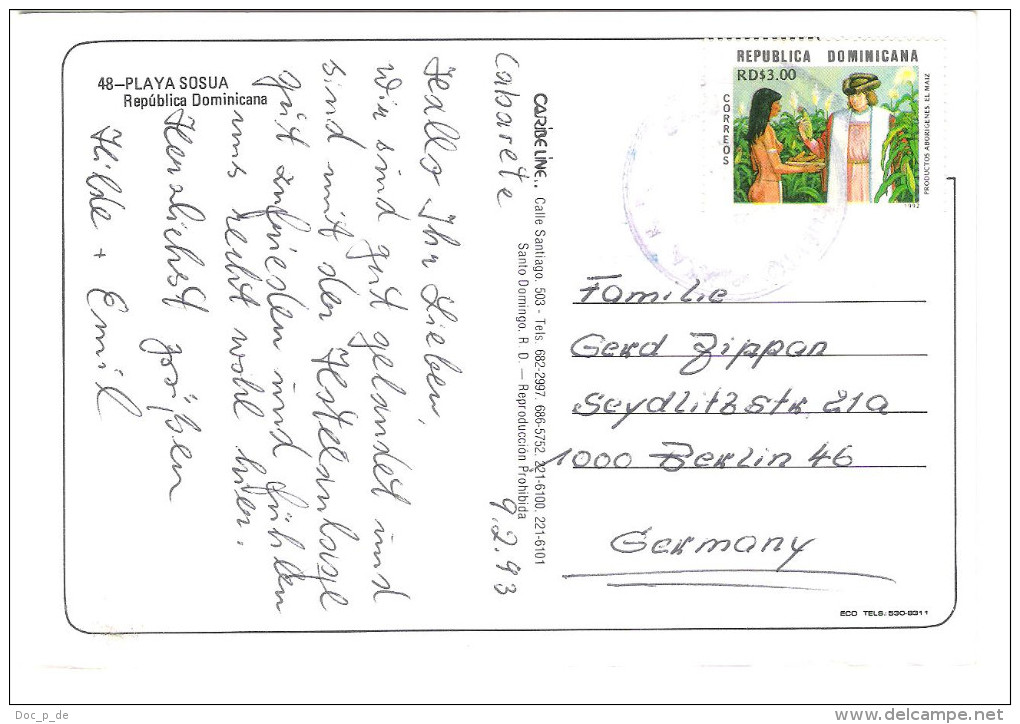 48–PLAYA SOSUA
República Dominicana
Cabarete 9.2.93
Hallo Ihr Lieben,
wir sind gut gelandet und
sind mit der Hotelanlage
gut zufrieden und fühlen
uns recht wohl hier.
Herzlichst grüßen
Hilde + Emil
CARIBE LINE.. Calle Santiago. 503 - Tels. 682-2997. 686-5752. 221-6100. 221-6101
Santo Domingo. R. D. — Reproducción Prohibida
REPUBLICA DOMINICANA
RD$3.00
CORREOS
PRODUCTOS ABORIGENES. EL MAIZ
1992
Familie
Gerd Zippan
Seydlitzstr 21a
1000 Berlin 46
Germany
ECO TELS.: 530-8311
Doc_p_de
www.delcampe.net